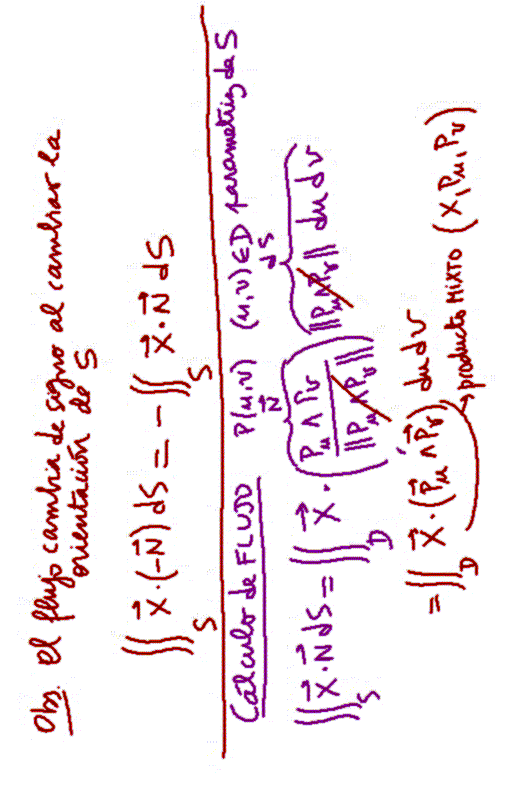 Obs. El flujo cambia de signo al cambiar la
orientación de S
∬_S X⃗·(-N⃗) dS = - ∬_S X⃗·N⃗ dS
Cálculo de FLUJO P(u,v) (u,v) ∈ D parametriz de S
∬_S X⃗·N⃗ dS = ∬_D X⃗ · \overbrace{\frac{P_u ∧ P_v}{||P_u ∧ P_v||}}^{N⃗} \overbrace{||P_u ∧ P_v|| du dv}^{dS}
= ∬_D X⃗·(P⃗_u ∧ P⃗_v) du dv
→ producto MIXTO (X, P_u, P_v)